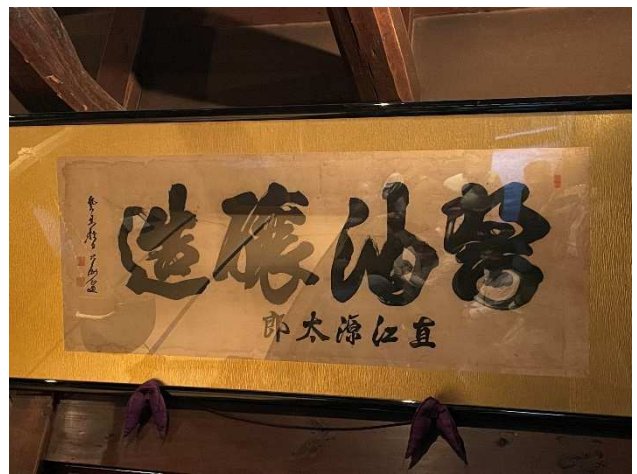 醤油醸造
直江源太郎